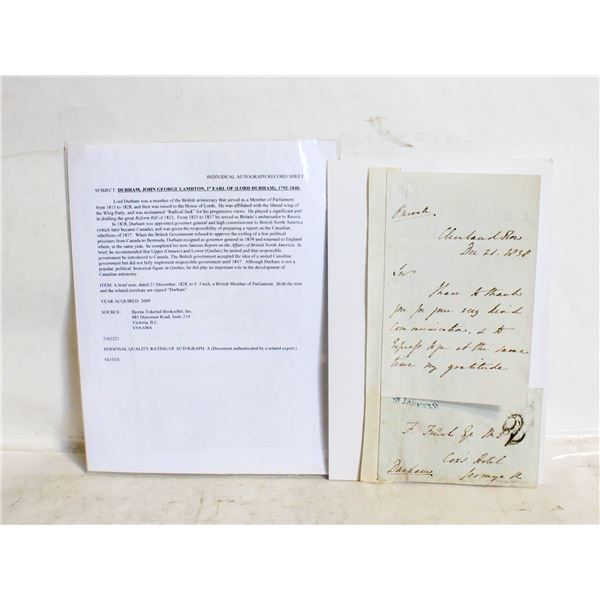 INDIVIDUAL AUTOGRAPH RECORD SHEET
SUBJECT: DURHAM, JOHN GEORGE LAMBTON, 1st EARL OF (LORD DURHAM), 1792-1840.
Lord Durham was a member of the British aristocracy that served as a Member of Parliament
from 1813 to 1828, and then was raised to the House of Lords. He was affiliated with the liberal wing of
the Whig Party, and was nicknamed "Radical Jack" for his progressive views. He played a significant part
in drafting the great Reform Bill of 1832. From 1835 to 1837 he served as Britain's ambassador to Russia.
In 1838, Durham was appointed governor general and high commissioner to British North America
(which later became Canada), and was given the responsibility of preparing a report on the Canadian
rebellions of 1837. When the British Government refused to approve the exiling of a few political
prisoners from Canada to Bermuda, Durham resigned as governor general in 1839 and returned to England
where, in the same year, he completed his now famous Report on the Affairs of British North America. In
brief, he recommended that Upper (Ontario) and Lower (Quebec) be united and that responsible
government be introduced to Canada. The British government accepted the idea of a united Canadian
government but did not fully implement responsible government until 1847. Although Durham is not a
popular, political historical figure in Quebec, he did play an important role in the development of
Canadian autonomy.
ITEM: A brief note, dated 21 December, 1828, to F. Finch, a British Member of Parliament. Both the note
and the related envelope are signed "Durham".
YEAR ACQUIRED: 2009
SOURCE: Bjarne Tokerud Bookseller, Inc.
Victoria, B.C.
PERSONAL QUALITY-RATING OF AUTOGRAPH: A (Document authenticated by a related expert.)
NOTES:
Private
Cleveland Row
Dec 21. 1838
Sir
I have to thank
you for your very kind
communication, & to
express to you at the same
time my gratitude
F. Finch Esq M.P.
2
Cox's Hotel
Durham Jermyn St